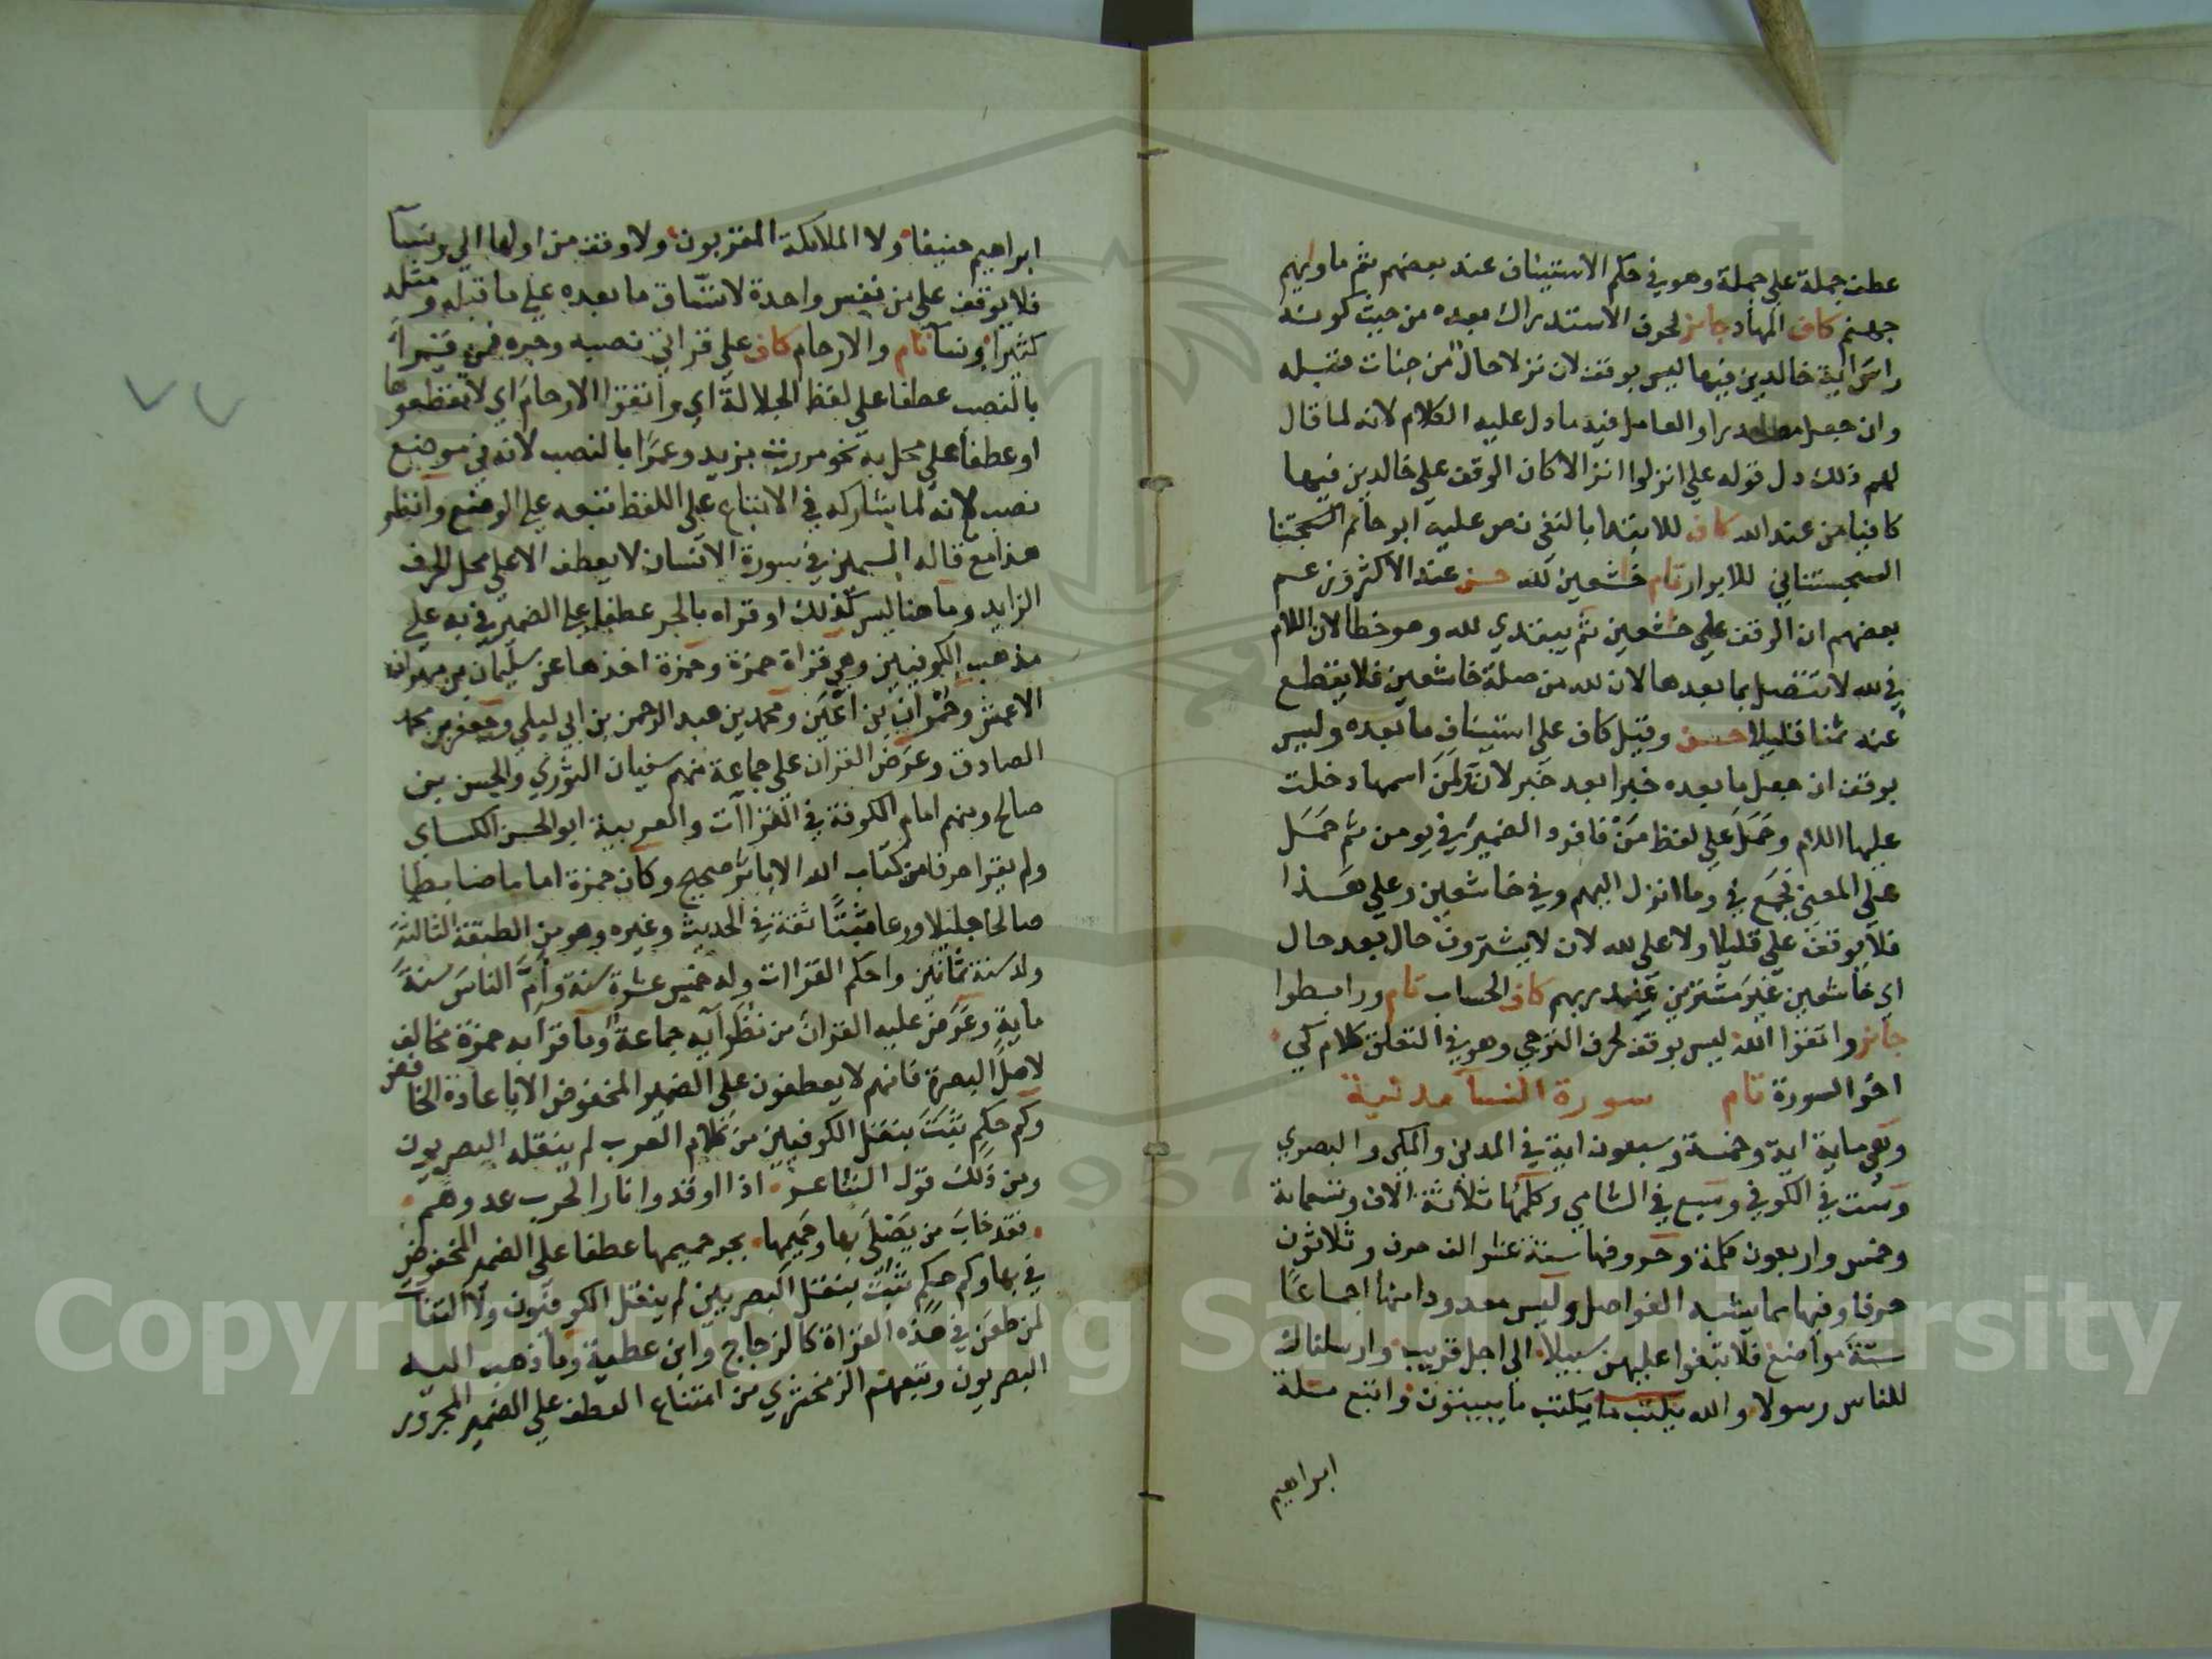 عطف جملة على جملة وهو في حكم الاستيناف عند بعضهم ثم ماويهم
جهنم كاف المهاد جايز لحرف الاستدراك بعده من حيث كونه
راس اية خالدين فيها ليس بوقف لان نزلا حال من جنات قبله
وان جعل مصدرا والعامل فيه ما دل عليه الكلام لانه لما قال
لهم ذلك دل قوله على انزلوا انزالا كان الوقف على خالدين فيها
كافيا من عند الله كاف للابتدا بالنفى نص عليه ابو حاتم السجتنا
السجستاني للابرار تام خشعين لله حسن عند الاكثر وزعم
بعضهم ان الوقف على خشعين ثم يبتدي لله وهو خطا لان اللام
في لله لا تتصل بما بعدها لان لله من صلة خاشعين فلا يقطع
عنه ثمنا قليلا حسن وقيل كاف على استيناف ما بعده وليس
بوقف ان جعل ما بعده خبرا بعد خبر لان لمن اسمها دخلت
عليها اللام وحمل على لفظ من فافرد الضمير في يومن ثم حمل
على المعنى فجمع في وما انزل اليهم وفي خاشعين وعلى هذا
فلا يوقف على قليلا ولا على لله لان لا يشترون حال بعد حال
اي خاشعين غير مشترين عند ربهم كاف الحساب تام ورابطوا
جايز واتقوا الله ليس بوقف لحرف الترجي وهو في التعلق كلام كي
اخر السورة تام سورة النسا مدنية
وهى ماية اية وخمسة وسبعون اية في المدنى والمكى والبصري
وست في الكوفي وسبع في الشامي وكلمها ثلاثة الاف وتسعماية
وخمس واربعون كلمة وحروفها ستة عشر الف حرف وثلاثون
حرفا وفيها مما يشبه الفواصل وليس معدودا منها اجماعا
ستة مواضع فلا تبغوا عليهن سبيلا الى اجل قريب وارسلناك
للناس رسولا والله يكتب ما يكتب ما يبيتون واتبع ملة
ابراهيم
ابراهيم حنيفا ولا الملايكة المقربون ولا وقف من اولها الى ونسآ
فلا يوقف على من نفس واحدة لاتساق ما بعده على ما قبله ومثله
كثيرا ونسآ تام والارحام كاف على قراتي نصبه وجره فمن قرا
بالنصب عطفا على لفظ الجلالة اي واتقوا الارحام اي لا تقطعوها
او عطفا على محل به نحو مررت بزيد وعمرا بالنصب لانه في موضع
نصب لانه لما شاركه في الاتباع على اللفظ تبعه على الموضع وانظر
هذا مع قاله السمين في سورة الانسان لا يعطف الا على محل الحرف
الزايد وما هنا ليس كذلك او قراه بالجر عطفا على الضمير في به على
مذهب الكوفيين وهي قراة حمزة وحمزة اخذها عن سليمان بن مهران
الاعمش وحمران بن اعين ومحمد بن عبد الرحمن بن ابي ليلي وجعفر بن محمد
الصادق وعرض القران على جماعة منهم سفيان الثوري والحسن بن
صالح ومنهم امام الكوفة في القراآت والعربية ابو الحسن الكساي
ولم يقرا حرفا من كتاب الله الا باثر صحيح وكان حمزة اماما ضابطا
صالحا جليلا ورعا مثبتا ثقة في الحديث وغيره وهو من الطبقة الثالثة
ولد سنة ثمانين واحكم القراات وله خمس عشرة سنة وام الناس سنة
ماية وعرض عليه القران من نظرآيه جماعة وما قرا به حمزة مخالف
لاهل البصرة فانهم لا يعطفون على الضمير المخفوض الا باعادة الخافض
وكم حكم ثبت بنقل الكوفيين من كلام العرب لم ينقله البصريون
ومن ذلك قول الشاعر اذا اوقدوا نارا لحرب عدوهم
فقد خاب من يصلى بها وحميمها بجر حميمها عطفا على الضمير المخفوض
في بها وكم حكم ثبت بنقل البصريين لم ينقل الكوفيون ولا التفات
لمن طعن في هذه القراة كالزجاج وابن عطية وما ذهب اليه
البصريون وتبعهم الزمخشري من امتناع العطف على الضمير المجرور
Copyright © King Saud University
1957